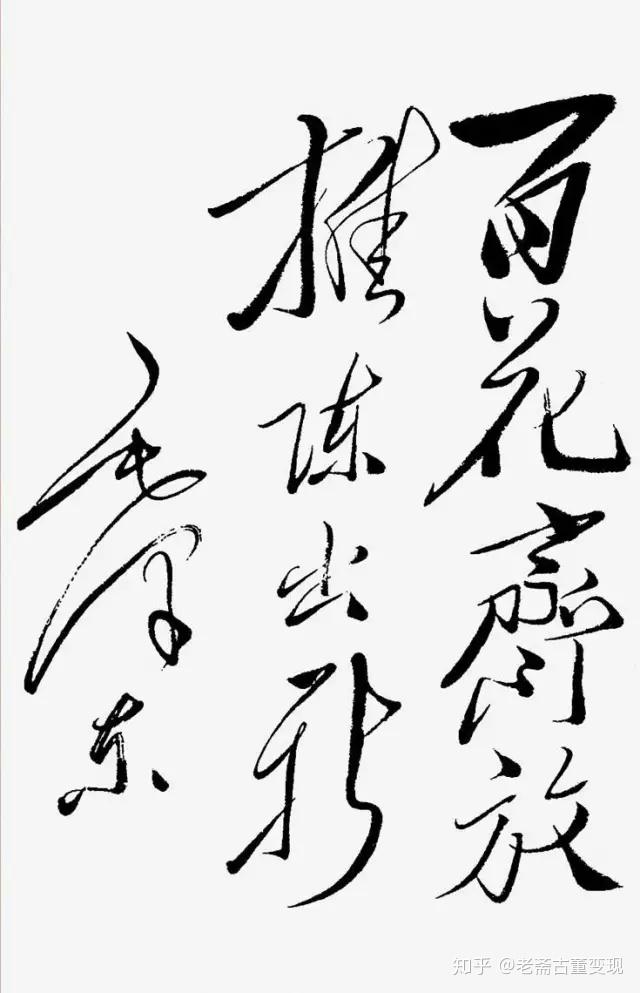 百花齊放
推陈出新
毛泽东
知乎 @老斋古董变现